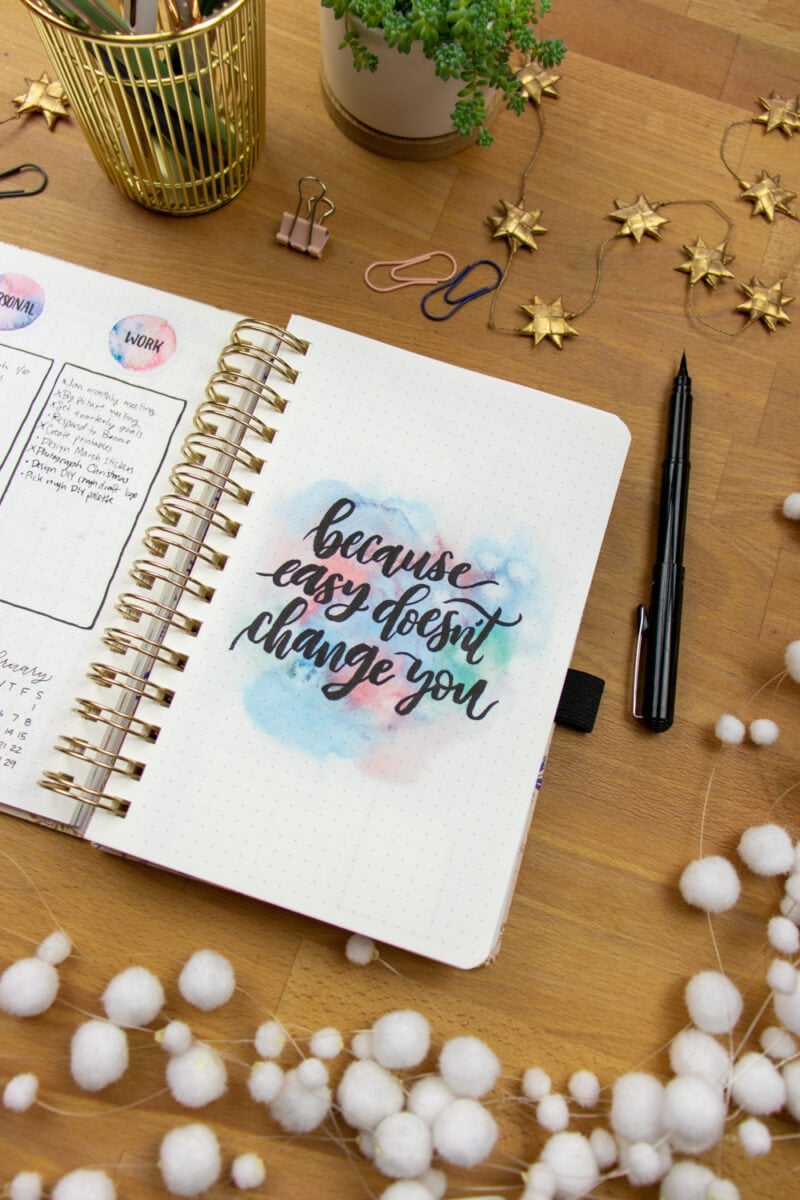 RSONAL
WORK
1/10
x Jan monthly meeting
x Big picture meeting
x Set quarterly goals
• Respond to Bonnie
x Create printables
• Design March sticker
x Photograph Christmas
• Design DIY rough draft logo
• Pick rough DIY palette
bruary
T F S
1
6 7 8
14 15
21 22
29
because
easy doesn't
change you